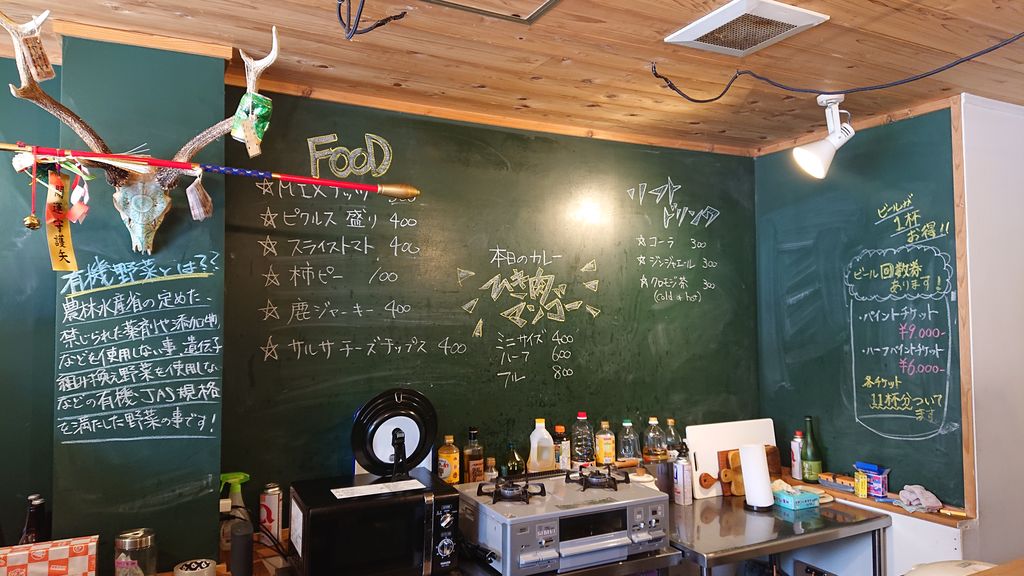 守護矢
有機野菜とは??
農林水産省の定めた、
禁じられた薬剤や添加物
などを使用しない事、遺伝子
組み換え野菜を使用しない
などの有機JAS規格
を満たした野菜の事です!
FOOD
MIXナッツ
ピクルス盛り 400
スライストマト 400
柿ピー 100
鹿ジャーキー 400
サルサチーズチップス 400
本日のカレー
ひき肉
ミニサイズ 400
ハーフ 600
フル 800
ソフト
ドリンク
コーラ 300
ジンジャエール 300
クロモジ茶 300
(cold or hot)
ビールが
1杯
お得!!
ビール回数券
あります!
・パイントチケット
¥9,000-
・ハーフパイントチケット
¥6,000-
各チケット
11杯分ついて
ます